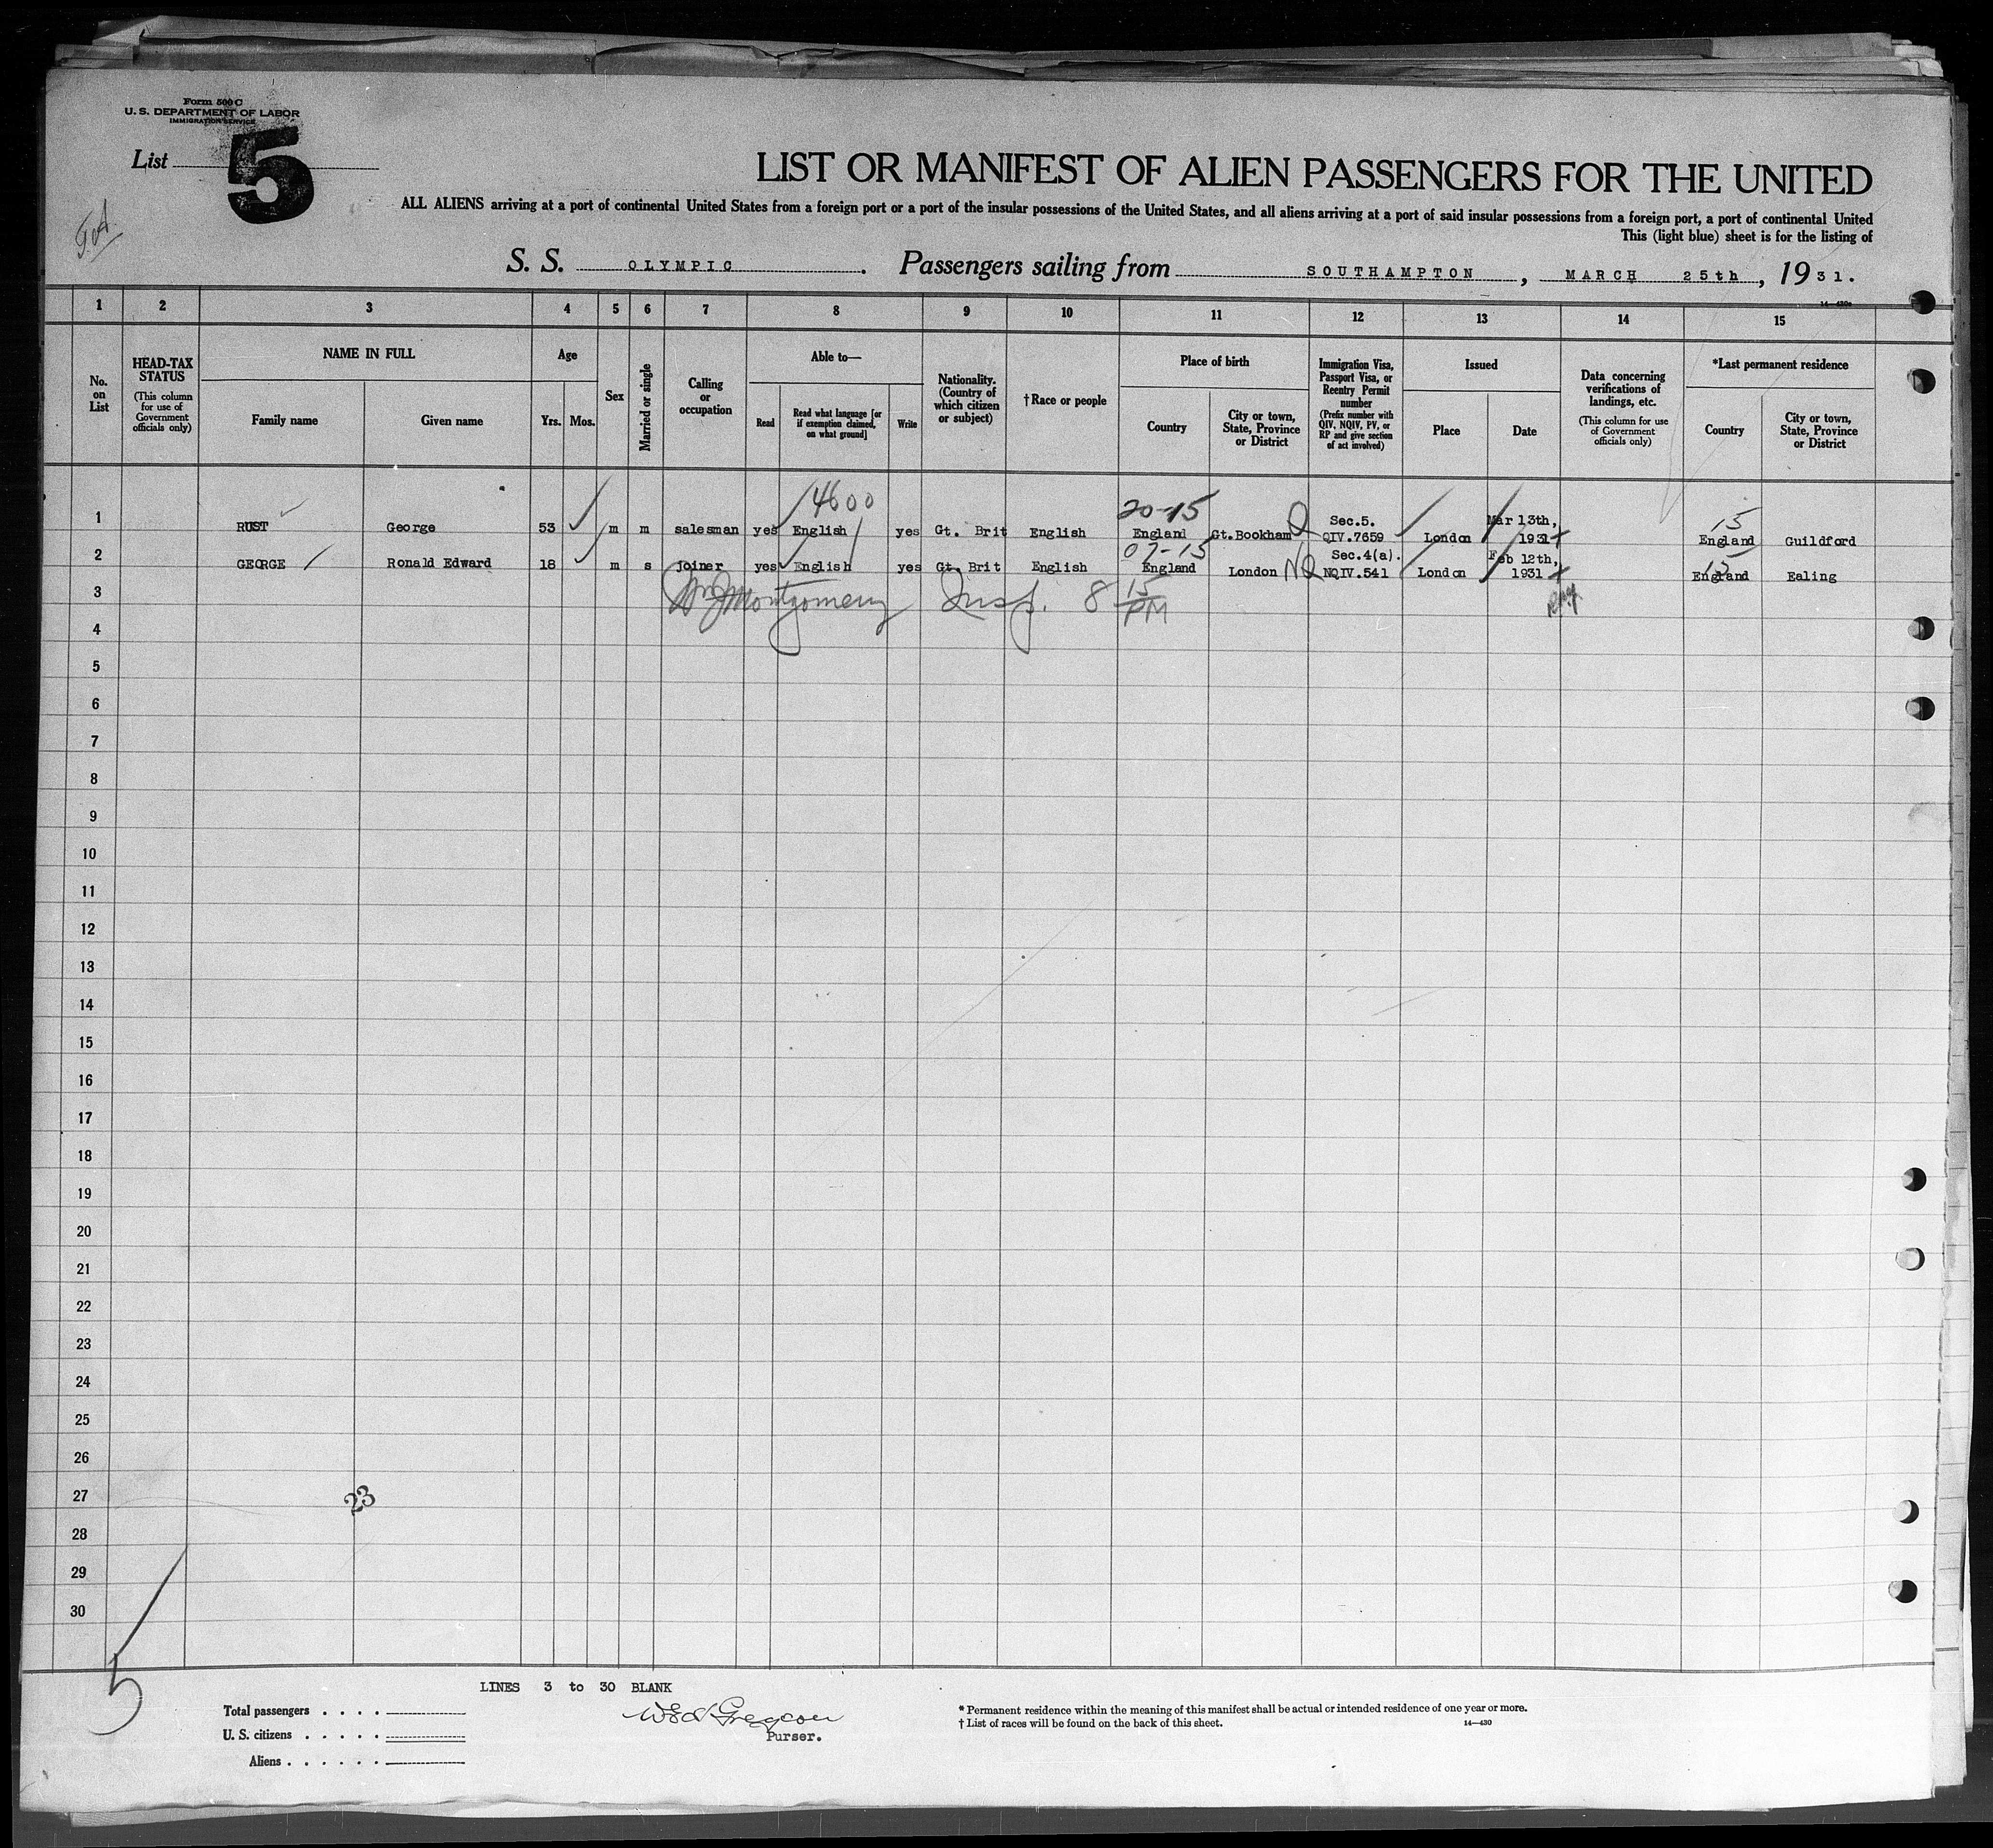 Form 500 C
U. S. DEPARTMENT OF LABOR
IMMIGRATION SERVICE
List 5
LIST OR MANIFEST OF ALIEN PASSENGERS FOR THE UNITED
ALL ALIENS arriving at a port of continental United States from a foreign port or a port of the insular possessions of the United States, and all aliens arriving at a port of said insular possessions from a foreign port, a port of continental United
This (light blue) sheet is for the listing of
S. S. OLYMPIC . Passengers sailing from SOUTHAMPTON , MARCH 25th , 1931.
1 2 3 4 5 6 7 8 9 10 11 12 13 14 15
No. on List
HEAD-TAX STATUS
(This column for use of Government officials only)
NAME IN FULL
Family name
Given name
Age
Yrs.
Mos.
Sex
Married or single
Calling or occupation
Able to—
Read
Read what language [or if exemption claimed, on what ground]
Write
Nationality. (Country of which citizen or subject)
†Race or people
Place of birth
Country
City or town, State, Province or District
Immigration Visa, Passport Visa, or Reentry Permit number
(Prefix number with QIV, NQIV, PV, or RP and give section of act involved)
Issued
Place
Date
Data concerning verifications of landings, etc.
(This column for use of Government officials only)
*Last permanent residence
Country
City or town, State, Province or District
4600 20-15 15
1 RUST George 53 m m salesman yes English yes Gt. Brit English England Gt.Bookham Q Sec.5. QIV.7659 London Mar 13th, 1931 England Guildford
07-15 15
2 GEORGE Ronald Edward 18 m s joiner yes English yes Gt. Brit English England London NQ Sec.4(a). NQIV.541 London Feb 12th, 1931 England Ealing
3 Wm J Montgomery Insp. 8 15 PM
4
5
6
7
8
9
10
11
12
13
14
15
16
17
18
19
20
21
22
23
24
25
26
27 23
28
29
30
5
LINES 3 to 30 BLANK
Total passengers . . . .
U. S. citizens . . . . .
Aliens . . . . . .
Purser.
* Permanent residence within the meaning of this manifest shall be actual or intended residence of one year or more.
† List of races will be found on the back of this sheet.
14—430